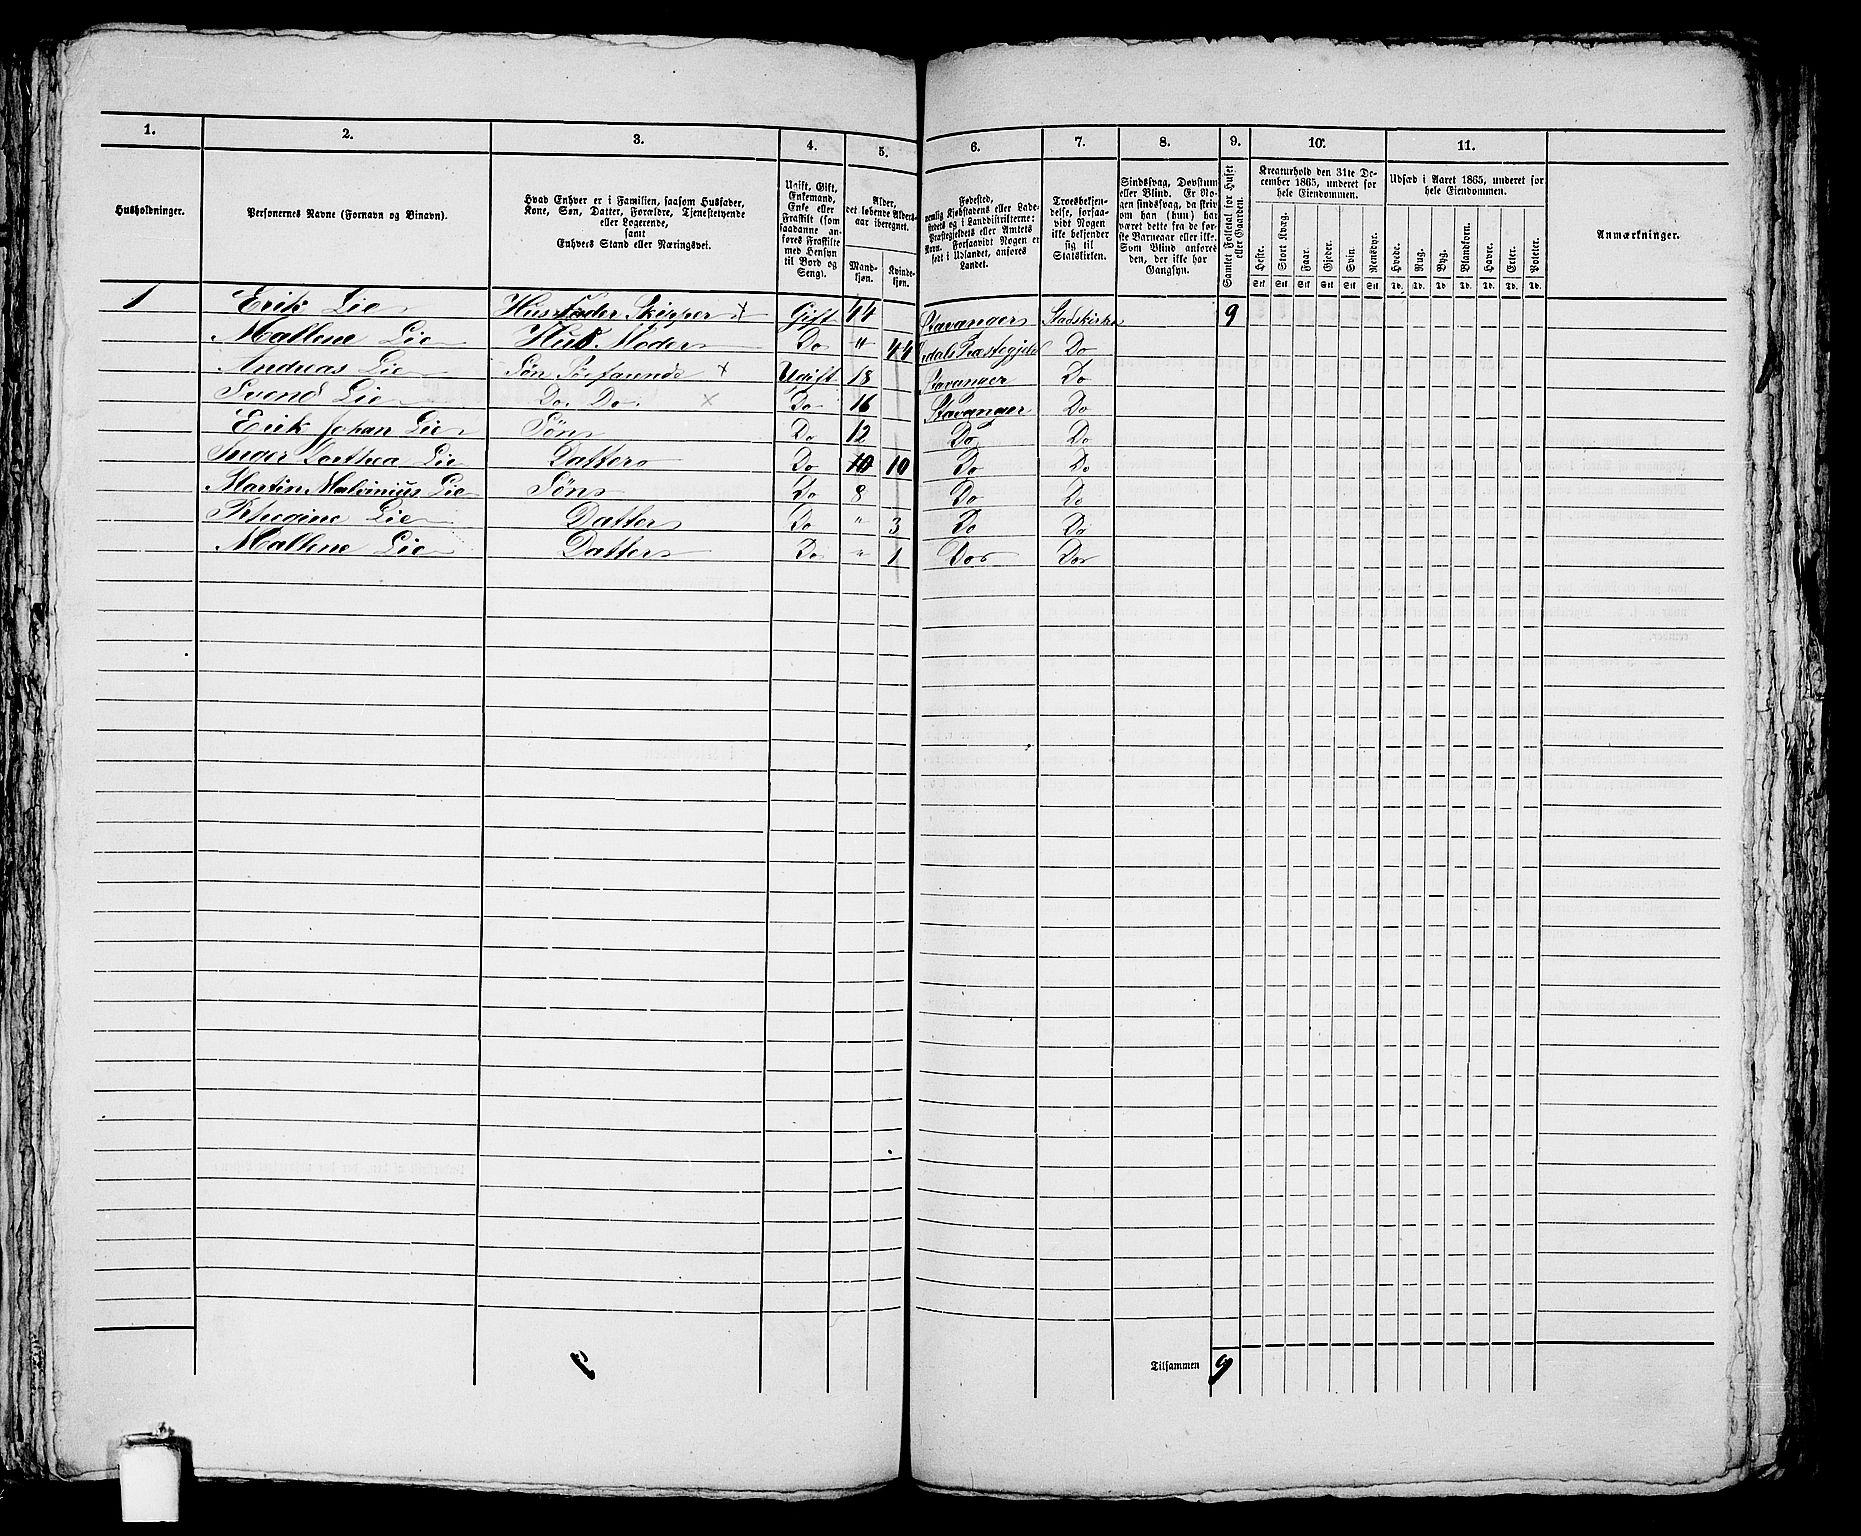 1. 2. 3. 4. 5. 6. 7. 8. 9. 10. 11.
Husholdninger.
Personernes Navne (Fornavn og Binavn).
Hvad Enhver er i Familien, saasom Husfader,
Kone, Søn, Datter, Forældre, Tjenestetyende
eller Logerende,
samt
Enhvers Stand eller Næringsvei.
Ugift, Gift,
Enkemand,
Enke eller
Fraskilt (som
saadanne an-
føres Fraskilte
med Hensyn
til Bord og
Seng).
Alder,
det løbende Alders-
aar iberegnet.
Mand-
kjøn.
Kvinde-
kjøn.
Fødested,
nemlig Kjøbstadens eller Lade-
stedets og i Landdistrikterne:
Præstegjeldets eller Amtets
Navn. Forsaavidt Nogen er
født i Udlandet, anføres
Landet.
Troesbekjen-
delse, forsaa-
vidt Nogen
ikke bekjender
sig til
Statskirken.
Sindssvag, Døvstum
eller Blind. Er No-
gen sindssvag, da skriv
om han (hun) har
været dette fra de før-
ste Barneaar eller ikke.
Som Blind anføres
den, der ikke har
Gangsyn.
Samlet Folketal for Huset
eller Gaarden.
Kreaturhold den 31te De-
cember 1865, underet for
hele Eiendommen.
Heste. Stort Kvæg. Faar. Gjeder. Svin. Rensdyr.
Stk Stk Stk Stk Stk Stk
Udsæd i Aaret 1865, underet for
hele Eiendommen.
Hvede. Rug. Byg. Blandkorn. Havre. Erter. Poteter.
Td. Td. Td. Td. Td. Td. Td.
Anmærkninger.
1 Erik Lie Husfader Skipper x Gift 44 Stavanger Stadskirke 9
Mallene Lie Hus Moder Do " 44 Præstegjeld Do
Andreas Lie Søn Søefarende x Ugift 18 Stavanger Do
Svend Lie Do. Do. x Do 16 Stavanger Do
Erik Johan Lie Søn Do 12 Do Do
Inger Dorthea Lie Datter Do 10 10 Do Do
Martin Malvinius Lie Søn Do 8 Do Do
Rhegine Lie Datter Do " 3 Do Do
Mallene Lie Datter Do " 1 Do Do
Tilsammen 9